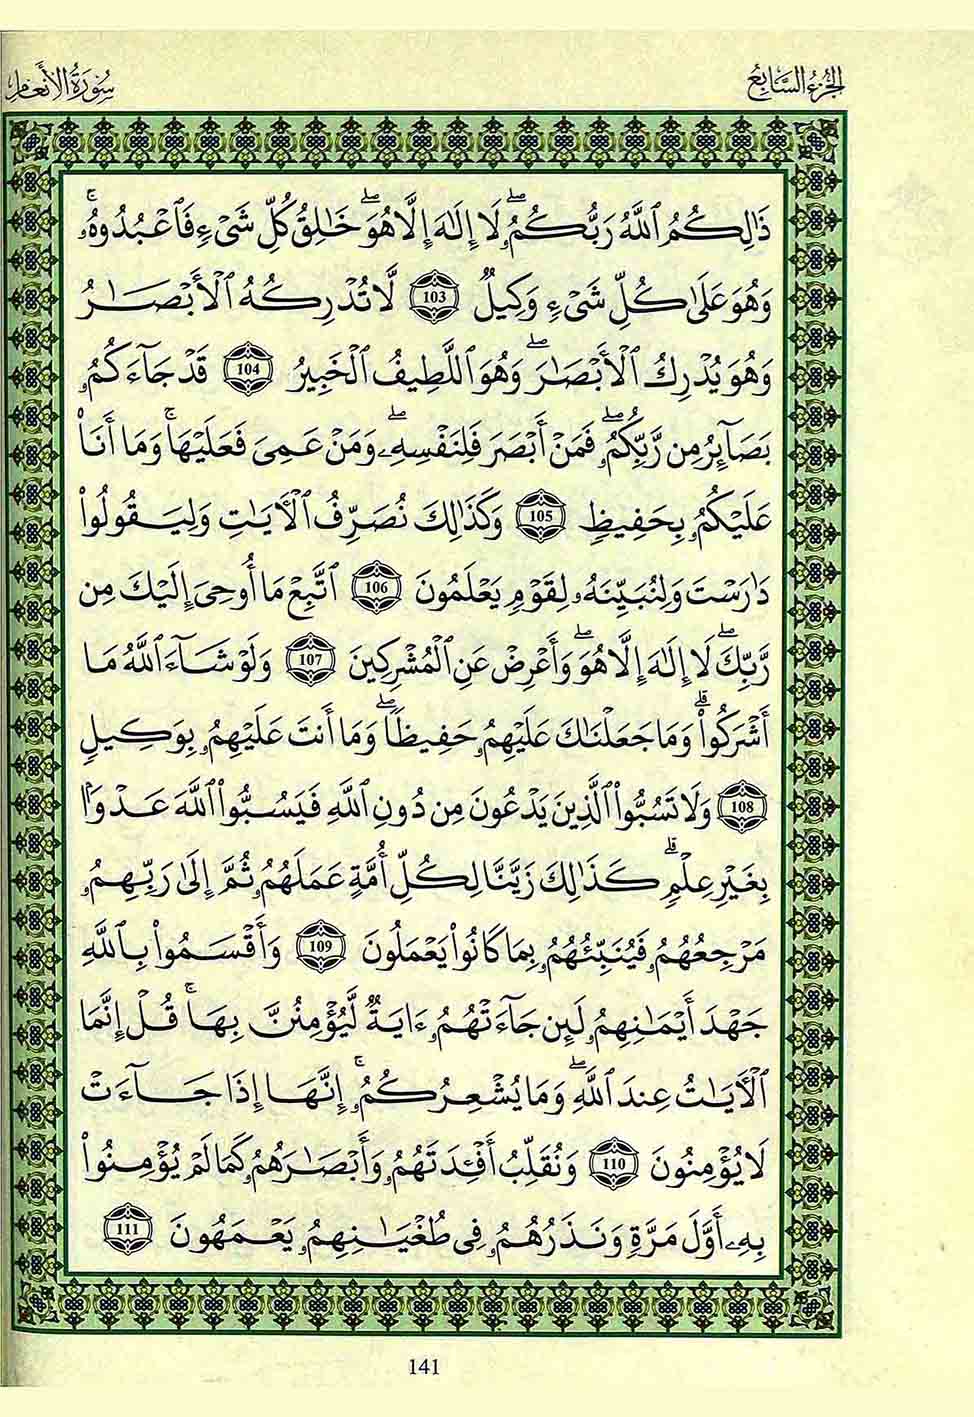 الجزء السابع
سورة الأنعام
ذَٰلِكُمُ ٱللَّهُ رَبُّكُمُۥۖ لَا إِلَٰهَ إِلَّا هُوَۖ خَٰلِقُ كُلِّ شَىْءٍ فَٱعْبُدُوهُۚۥ
وَهُوَ عَلَىٰ كُلِّ شَىْءٍ وَكِيلٌ 103 لَّا تُدْرِكُهُ ٱلْأَبْصَٰرُ
وَهُوَ يُدْرِكُ ٱلْأَبْصَٰرَۖ وَهُوَ ٱللَّطِيفُ ٱلْخَبِيرُ 104 قَدْ جَآءَكُمُۥ
بَصَآئِرُ مِن رَّبِّكُمُۥۖ فَمَنْ أَبْصَرَ فَلِنَفْسِهِۦۖ وَمَنْ عَمِىَ فَعَلَيْهَاۚ وَمَا أَنَا۠
عَلَيْكُمُۥ بِحَفِيظٍ 105 وَكَذَٰلِكَ نُصَرِّفُ ٱلْأٓيَٰتِ وَلِيَقُولُوا۟
دَٰرَسْتَ وَلِنُبَيِّنَهُۥ لِقَوْمٍ يَعْلَمُونَ 106 ٱتَّبِعْ مَا أُوحِىَ إِلَيْكَ مِن
رَّبِّكَۖ لَا إِلَٰهَ إِلَّا هُوَۖ وَأَعْرِضْ عَنِ ٱلْمُشْرِكِينَ 107 وَلَوْ شَآءَ ٱللَّهُ مَا
أَشْرَكُوا۟ۗ وَمَا جَعَلْنَٰكَ عَلَيْهِمُۥ حَفِيظًاۖ وَمَا أَنتَ عَلَيْهِمُۥ بِوَكِيلٍ
108 وَلَا تَسُبُّوا۟ ٱلَّذِينَ يَدْعُونَ مِن دُونِ ٱللَّهِ فَيَسُبُّوا۟ ٱللَّهَ عَدْوًۢا
بِغَيْرِ عِلْمٍۗ كَذَٰلِكَ زَيَّنَّا لِكُلِّ أُمَّةٍ عَمَلَهُمُۥ ثُمَّ إِلَىٰ رَبِّهِمُۥ
مَرْجِعُهُمُۥ فَيُنَبِّئُهُمُۥ بِمَا كَانُوا۟ يَعْمَلُونَ 109 وَأَقْسَمُوا۟ بِٱللَّهِ
جَهْدَ أَيْمَٰنِهِمُۥ لَئِن جَآءَتْهُمُۥ ءَايَةٌ لَّيُؤْمِنُنَّ بِهَاۚ قُلْ إِنَّمَا
ٱلْأٓيَٰتُ عِندَ ٱللَّهِۖ وَمَا يُشْعِرُكُمُۥۚ إِنَّهَا إِذَا جَآءَتْ
لَا يُؤْمِنُونَ 110 وَنُقَلِّبُ أَفْـِٔدَتَهُمُۥ وَأَبْصَٰرَهُمُۥ كَمَا لَمْ يُؤْمِنُوا۟
بِهِۦ أَوَّلَ مَرَّةٍ وَنَذَرُهُمُۥ فِى طُغْيَٰنِهِمُۥ يَعْمَهُونَ 111
141